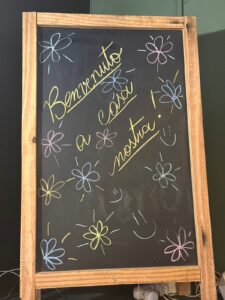 Benvenuto
a casa
nostra!